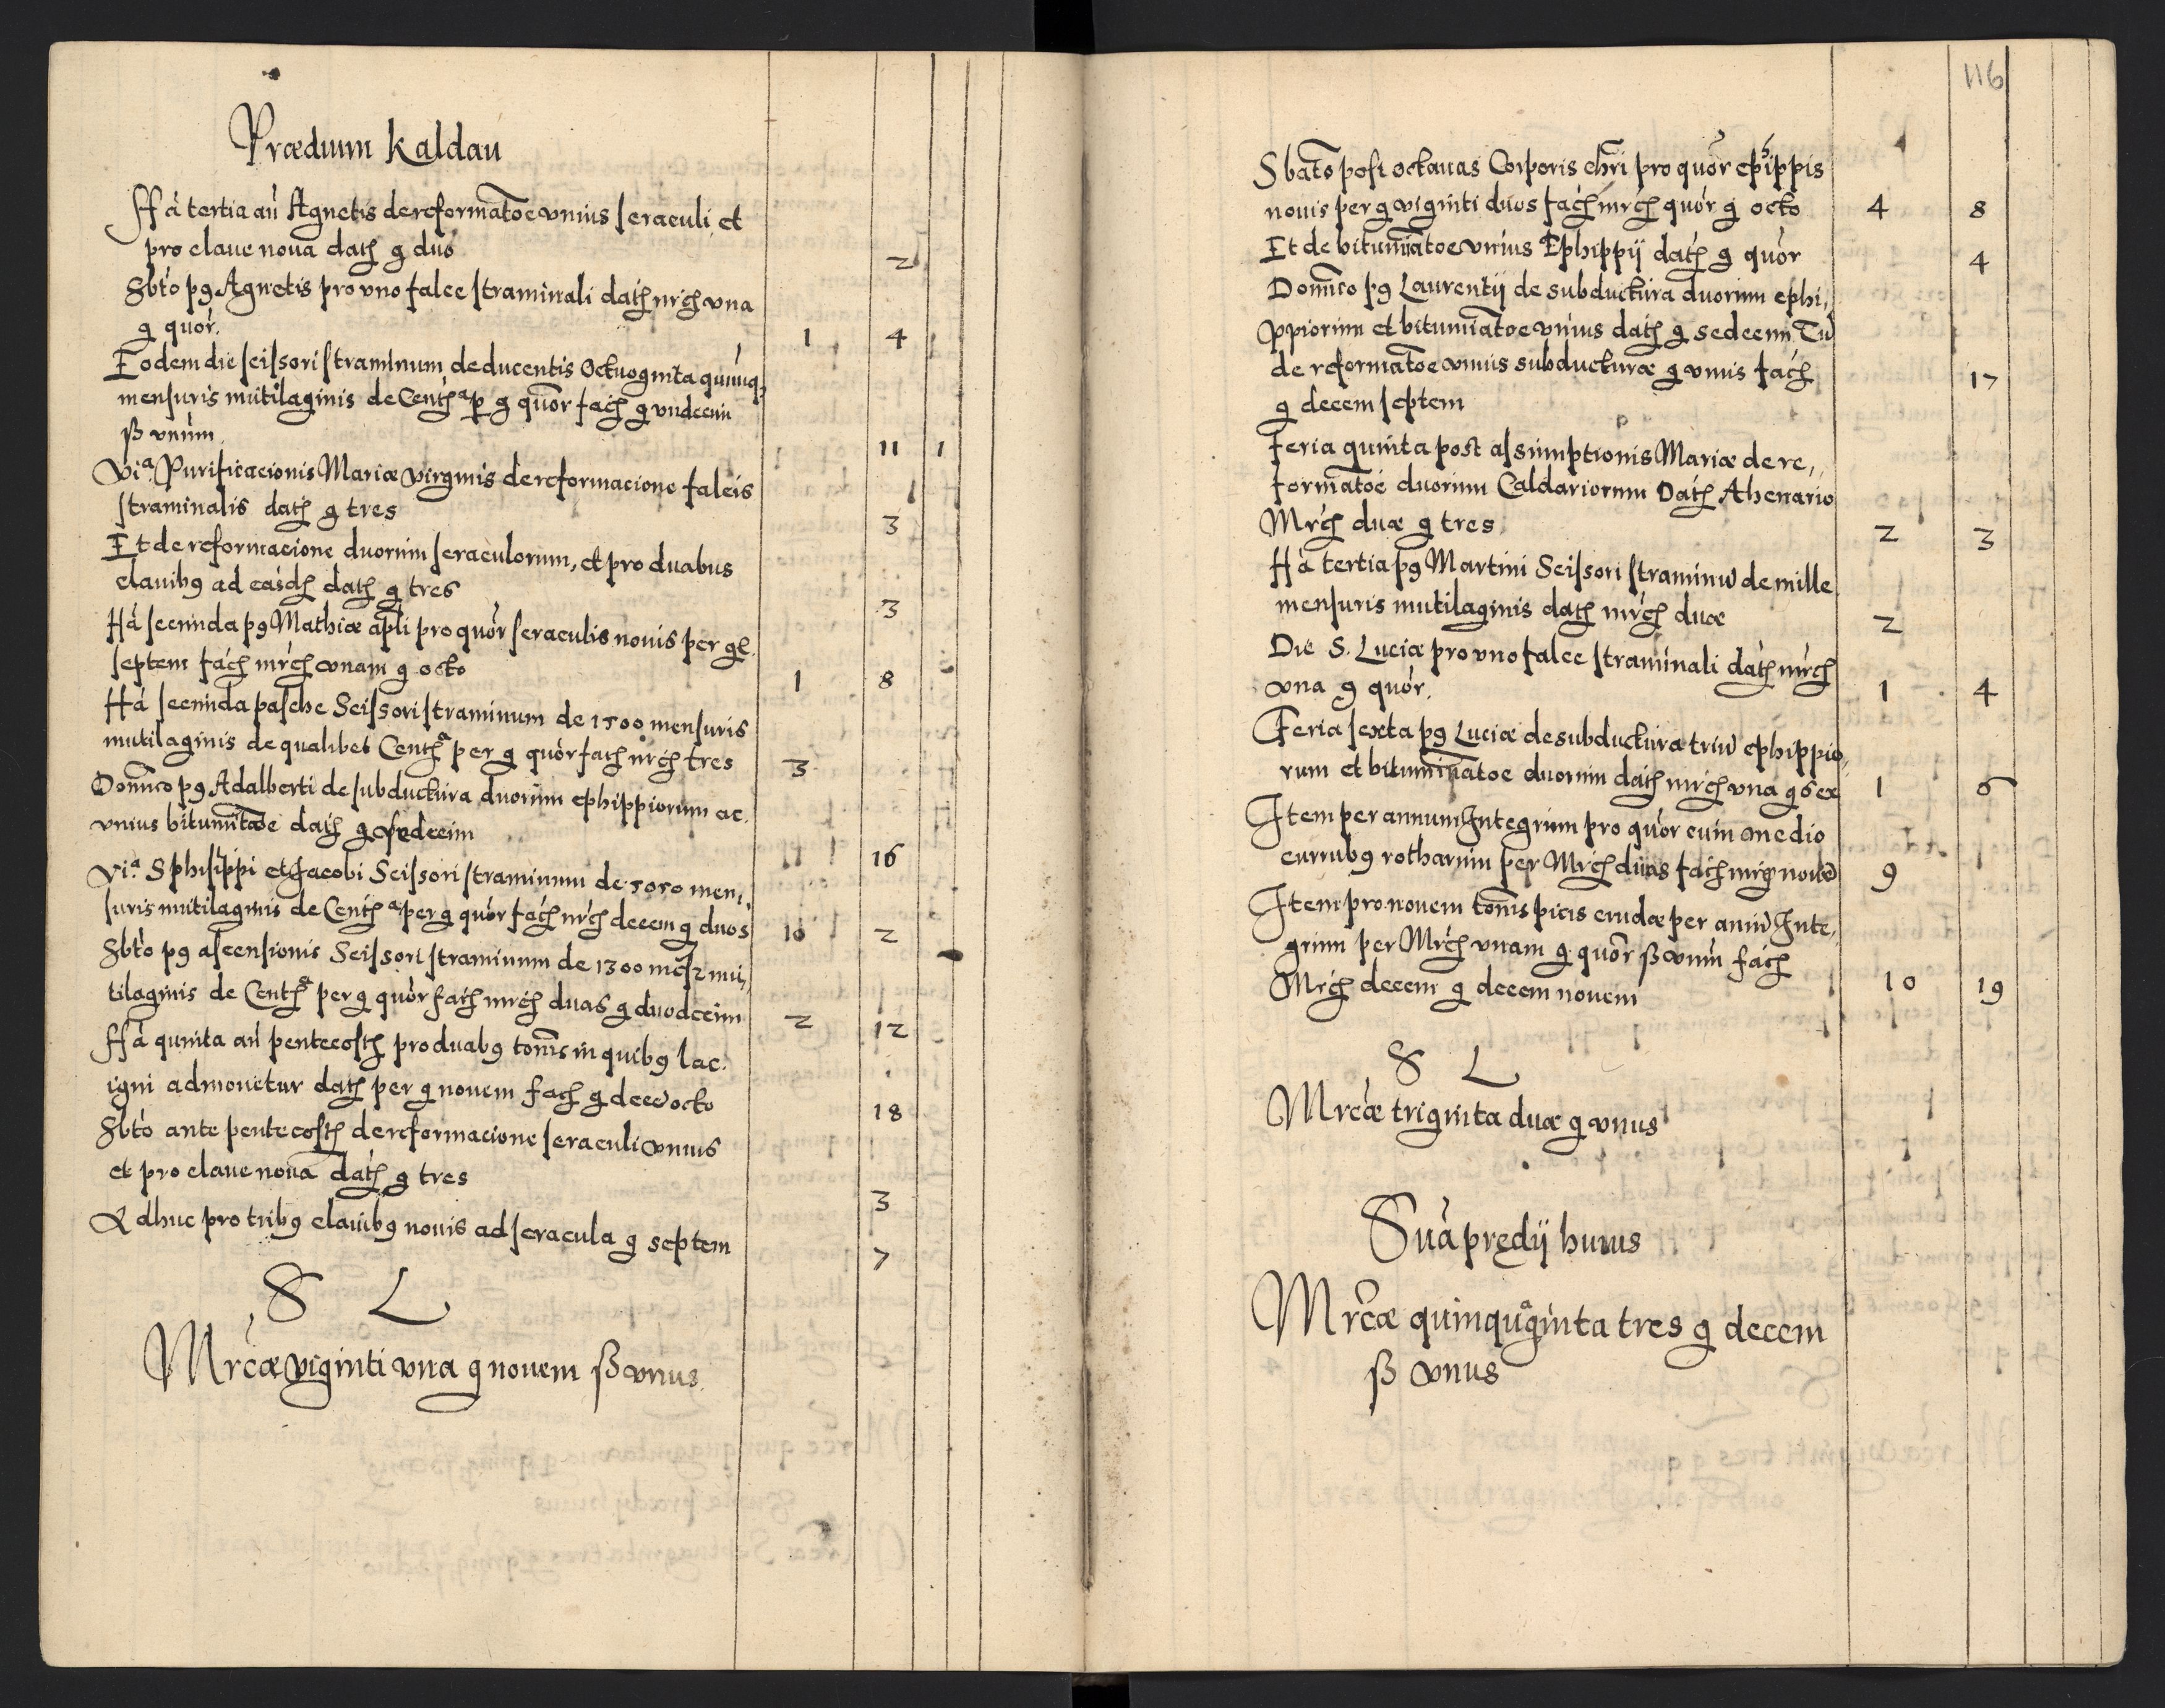 Prædium Kaldau
ffà tertia añ Agnetis de reformatoe vnius seraculi et
pro claue noua datħ g duo
2
Sbto pg Agnetis pro vno falce straminali datħ mrcħ vna
g quor.
1 4
Eodem die scissori straminum de ducentis Octuoginta quinq
mensuris mutilaginis de Centħᵃ p g quor facħ g vndecim
ß vnum
11 1
Viᵃ Purificacionis Mariæ virginis de reformacione falcis
straminalis datħ g tres
3
Et de reformacione duorum seraculorum, et pro duabus
clauibg ad easdħ datħ g tres
3
ffà secunda pg Mathiæ apli pro quor seraculis nouis per gl.
septem facħ mrcħ vnam g octo
1 8
ffà secunda pasche Scissori straminum de 1500 mensuris
mutilaginis de qualibet Centħᵃ per g quor facħ mrcħ tres
3
Domco pg Adalberti de subductura duorum ephippiorum ac
vnius bitumitaoe datħ g sedecim
16
Viᵃ S phisippi et Jacobi Scissori straminum de 5050 men,
suris mutilaginis de Centħᵃ per g quor facħ mrcħ decem g duos
10 2
Sbto pg ascensionis Scissori straminum de 1300 mēsz mu,
tilaginis de Centħᵃ per g quor facħ mrcħ duas g duodecim
2 12
ffà quinta añ pentecostħ pro duabg tonis in quibg lac
igni admouetur datħ per g nouem facħ g decē octo
18
Sbto ante pentecostħ de reformacione seraculi vnius
et pro claue noua datħ g tres
3
Adhuc pro tribg clauibg nouis ad seracula g septem
7
S L
Mrcæ viginti vna g nouem ß vnus
116
Sbato post octauas Corporis chri pro quor ephippis
nouis per g viginti duos facħ mrcħ quor g octo
4 8
Et de bituminatoe vnius Ephippij datħ g quor
4
Domco pg Laurentij de subductura duorum ephi,
ppiorum et bituminatoe vnius datħ g sedecim Tū
de reformatoe vnius subducturæ g vnus facħ
g decem septem
17
feria quinta post assumptionis Mariæ de re,
formatoe duorum Caldariorum Datħ Ahenario
Mrcħ duæ g tres
2 3
ffà tertia pg Martini Scissori straminū de mille
mensuris mutilaginis datħ mrcħ duæ
2
Die S. Luciæ pro vno falce straminali datħ mrcħ
vna g quor.
1 4
Feria sexta pg Luciæ de subductura triū ephippio,
rum et bituminatoe duorum datħ mrcħ vna g sex
1 6
Item per annum Integrum pro quor cum medio
currubg rotharum per Mrcħ duas facħ mrg nouē
9
Item pro nouem tonis picis crudæ per annū Inte,
grum per Mrcħ vnam g quor ß vnum facħ
Mrcħ decem g decem nouem
10 19
S L
Mrcæ triginta duæ g vnus
Suà prędij huius
Mrcæ quinquaginta tres g decem
ß vnus